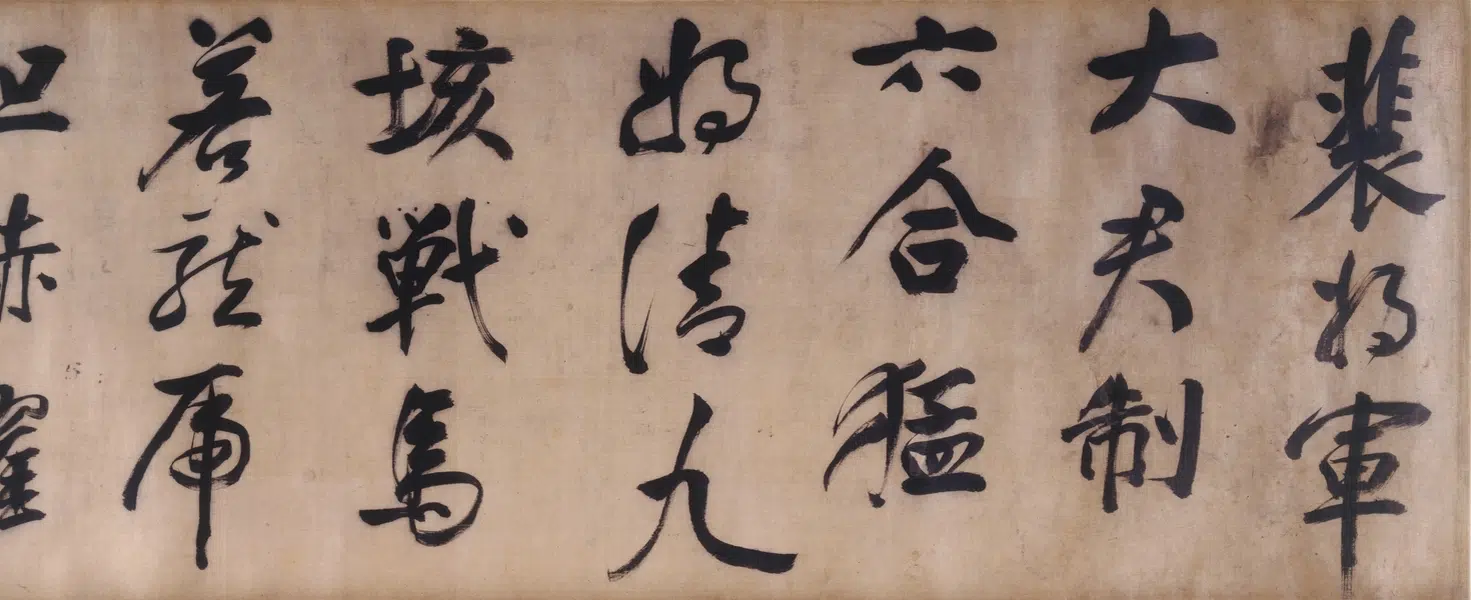 裴將軍
大君制
六合猛
將清九
垓戰馬
若龍虎